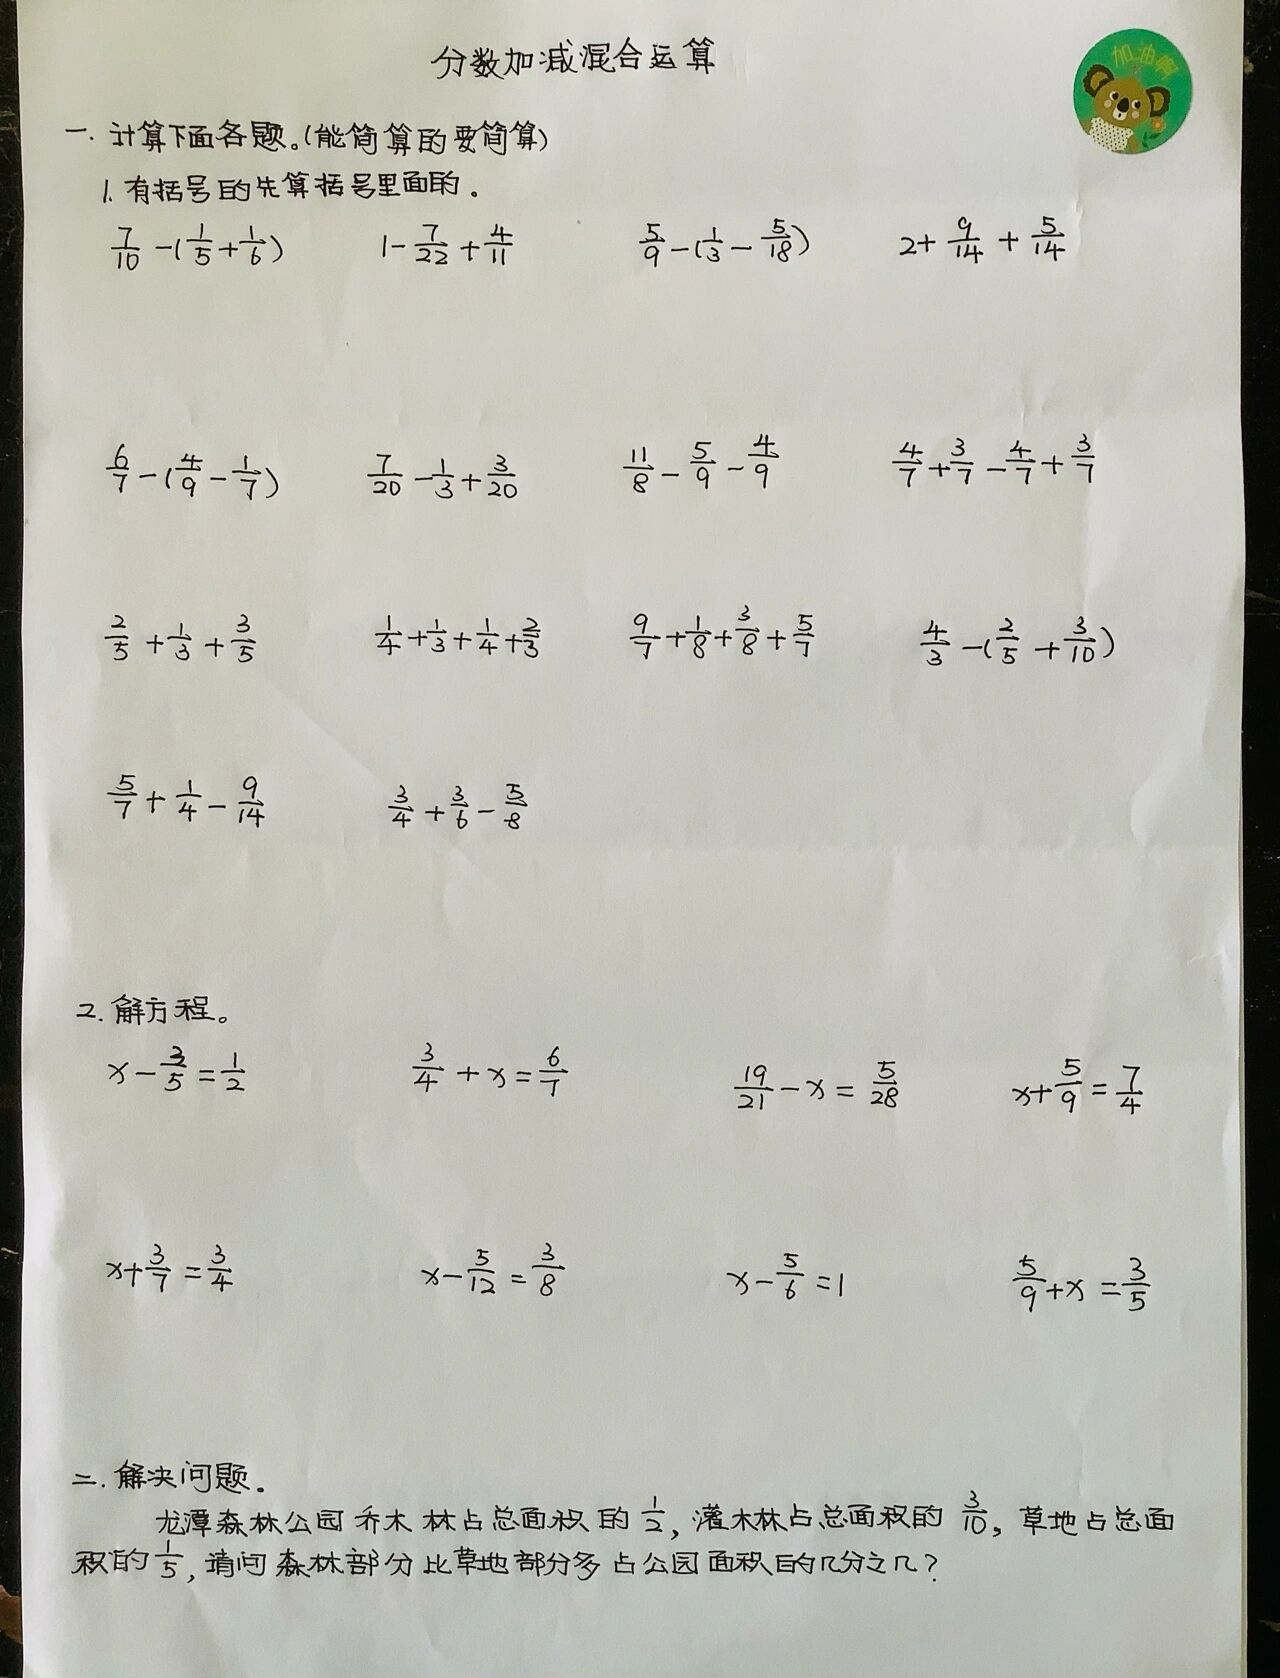 分数加减混合运算
加油啊
一. 计算下面各题。(能简算的要简算)
1. 有括号的先算括号里面的。
7/10 -(1/5+1/6) 1-7/22+4/11 5/9-(1/3-5/18) 2+9/14+5/14
6/7-(4/9-1/7) 7/20-1/3+3/20 11/8-5/9-4/9 4/7+3/7-4/7+3/7
2/5+1/3+3/5 1/4+1/3+1/4+2/3 9/7+1/8+3/8+5/7 4/3-(2/5+3/10)
5/7+1/4-9/14 3/4+3/6-5/8
2. 解方程。
x-/5=1/2 3/4+x=6/7 19/21-x=5/28 x+5/9=7/4
x+3/7=3/4 x-5/12=3/8 x-5/6=1 5/9+x=3/5
二. 解决问题。
龙潭森林公园乔木林占总面积的1/2, 灌木林占总面积的3/10, 草地占总面
积的1/5, 请问森林部分比草地部分多占公园面积的几分之几?